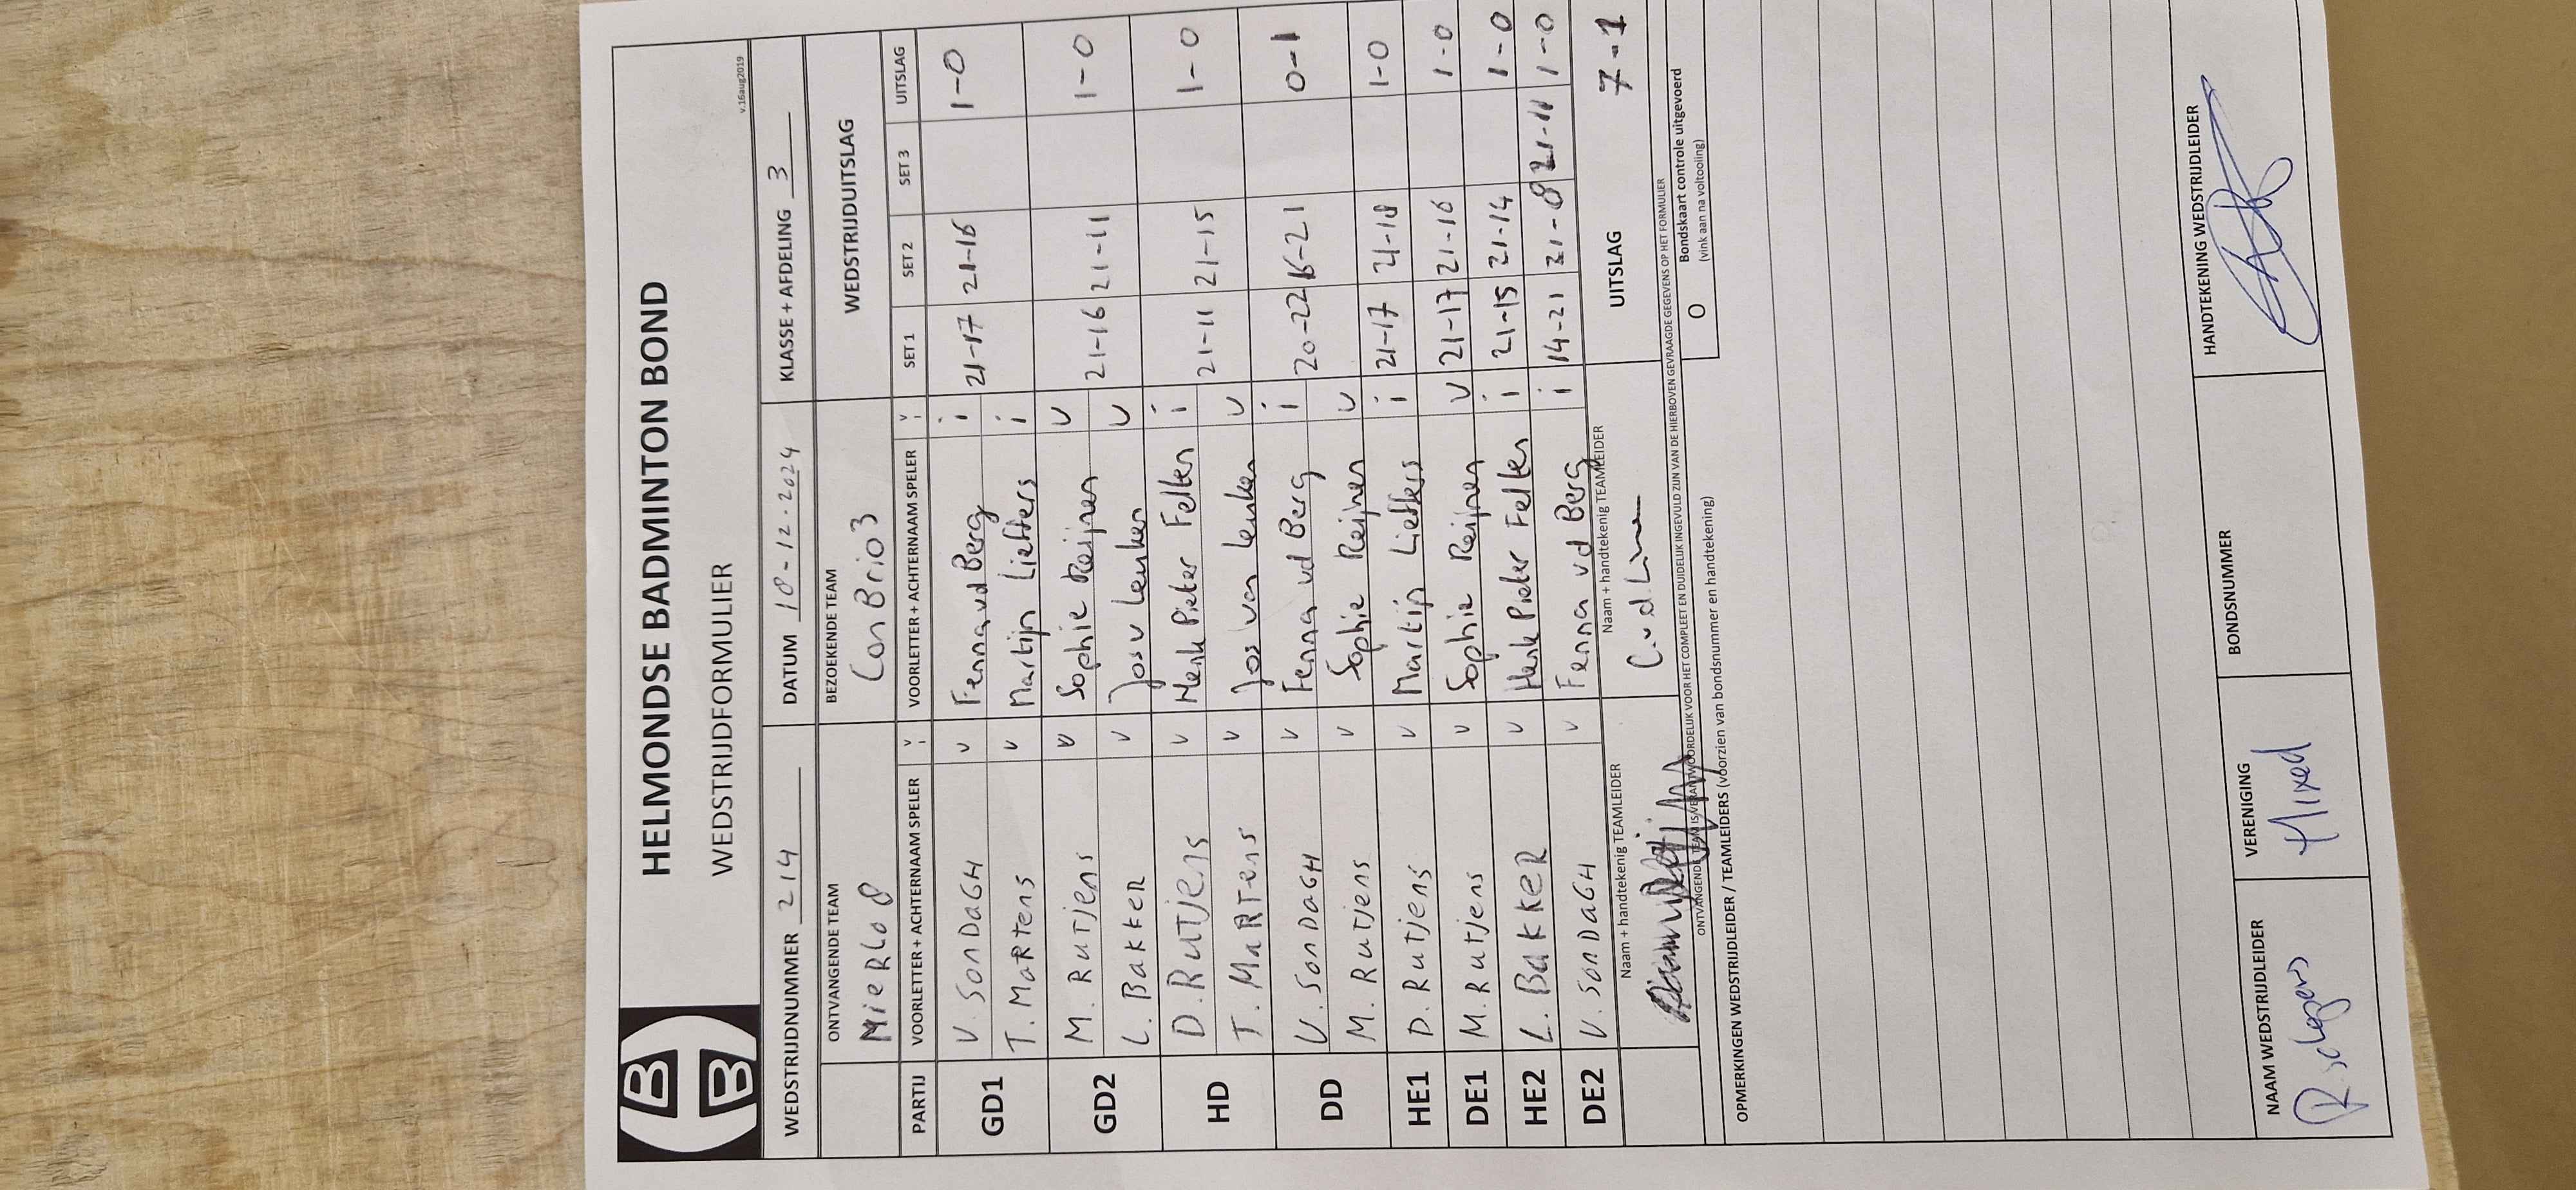 HELMONDSE BADMINTON BOND
WEDSTRIJDFORMULIER
v.16aug2019
WEDSTRIJDNUMMER 214 DATUM 10-12-2024 KLASSE + AFDELING 3
ONTVANGENDE TEAM BEZOEKENDE TEAM WEDSTRIJDUITSLAG
MieRLo 8 Con Brio 3
PARTIJ VOORLETTER + ACHTERNAAM SPELER V VOORLETTER + ACHTERNAAM SPELER V SET 1 SET 2 SET 3 UITSLAG
GD1 V. SonDaGH v Fenna vd Berg i 21-17 21-16 1-0
T. MaRTens v Martijn Liefters i
GD2 M. RuTjens v Sophie Reijnen v 21-16 21-11 1-0
L. BaKKeR v Jos v Leuken v
HD D. RuTjens v Henk Pieter Felten i 21-11 21-15 1-0
T. MaRTens v Jos van Leuken v
DD V. SonDaGH v Fenna vd Berg i 20-22 16-21 0-1
M. RuTjens v Sophie Reijnen v
HE1 D. RuTjens v Martijn Liefters i 21-17 21-10 1-0
DE1 M. RuTjens v Sophie Reijnen v 21-17 21-16 1-0
HE2 L. BaKKeR v Henk Pieter Felten i 21-15 21-14 1-0
DE2 V. SonDaGH v Fenna vd Berg i 14-21 21-8 21-11 1-0
Naam + handtekenig TEAMLEIDER Naam + handtekenig TEAMLEIDER UITSLAG 7-1
C.v.d.
ONTVANGENDE TEAM IS VERANTWOORDELIJK VOOR HET COMPLEET EN DUIDELIJK INGEVULD ZIJN VAN DE HIERBOVEN GEVRAAGDE GEGEVENS OP HET FORMULIER
O Bondskaart controle uitgevoerd
(vink aan na voltooling)
OPMERKINGEN WEDSTRIJDLEIDER / TEAMLEIDERS (voorzien van bondsnummer en handtekening)
NAAM WEDSTRIJDLEIDER VERENIGING BONDSNUMMER HANDTEKENING WEDSTRIJDLEIDER
Mixed